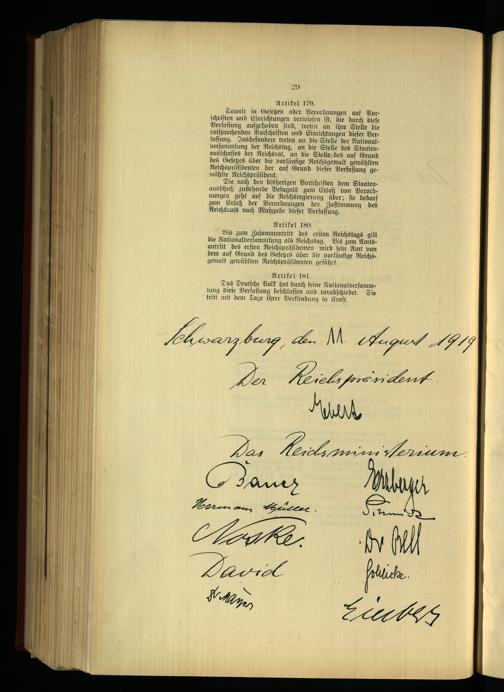 29
Artikel 179.
Soweit in Gesetzen oder Verordnungen auf Vor-
schriften und Einrichtungen verwiesen ist, die durch diese
Verfassung aufgehoben sind, treten an ihre Stelle die
entsprechenden Vorschriften und Einrichtungen dieser Ver-
fassung. Insbesondere treten an die Stelle der National-
versammlung der Reichstag, an die Stelle des Staaten-
ausschusses der Reichsrat, an die Stelle des auf Grund
des Gesetzes über die vorläufige Reichsgewalt gewählten
Reichspräsidenten der auf Grund dieser Verfassung ge-
wählte Reichspräsident.
Die nach den bisherigen Vorschriften dem Staaten-
ausschuß zustehende Befugnis zum Erlaß von Verord-
nungen geht auf die Reichsregierung über; sie bedarf
zum Erlaß der Verordnungen der Zustimmung des
Reichsrats nach Maßgabe dieser Verfassung.
Artikel 180.
Bis zum Zusammentritt des ersten Reichstags gilt
die Nationalversammlung als Reichstag. Bis zum Amts-
antritt des ersten Reichspräsidenten wird sein Amt von
dem auf Grund des Gesetzes über die vorläufige Reichs-
gewalt gewählten Reichspräsidenten geführt.
Artikel 181.
Das Deutsche Volk hat durch seine Nationalversamm-
lung diese Verfassung beschlossen und verabschiedet. Sie
tritt mit dem Tage ihrer Verkündung in Kraft.
Schwarzburg, den 11 August 1919
Der Reichspräsident.
Ebert
Das Reichsministerium.
Bauer
Erzberger
Hermann Müller.
Schmidt
Noske.
Dr Bell
David
Schlicke.
Dr Mayer
Giesberts